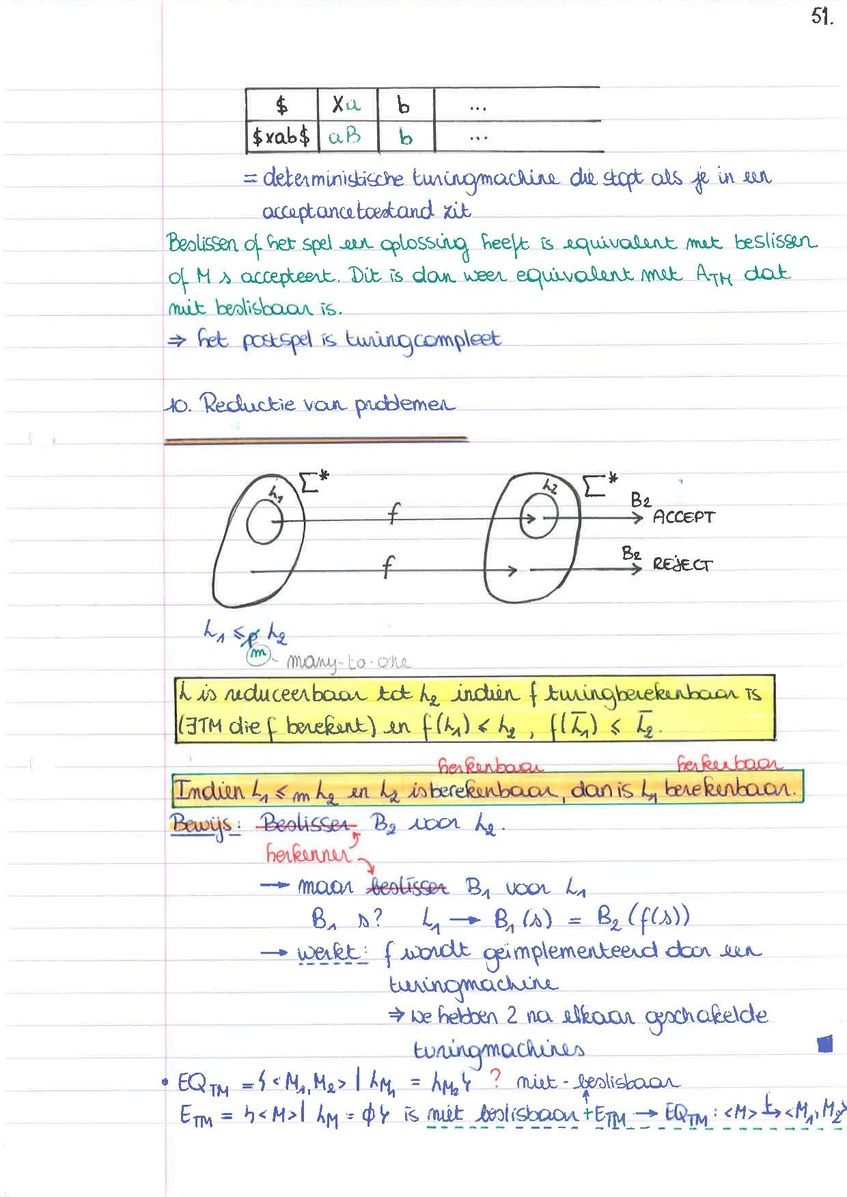 51.
$ Xa b ...
$xab$ aB b ...
= deterministische turingmachine die stopt als je in een
acceptancetoestand zit
Beslissen of het spel een oplossing heeft is equivalent met beslissen
of M s accepteert. Dit is dan weer equivalent met A_TM dat
niet beslisbaar is.
⇒ het postspel is turingcompleet
10. Reductie van problemen
L₁ Σ* L₂ Σ*
f B₂ → ACCEPT
f B₂ → REJECT
L₁ ≤ₘ L₂
m - many-to-one
L is reduceerbaar tot L₂ indien f turingberekenbaar is
(∃TM die f berekent) en f(L₁) ≤ L₂, f(L̄₁) ≤ L̄₂.
herkenbaar herkenbaar
Indien L₁ ≤m L₂ en L₂ is berekenbaar, dan is L₁ berekenbaar.
Bewijs: Beslisser B₂ voor L₂.
herkenner
→ maar beslisser B₁ voor L₁
B₁ s? L₁ → B₁(s) = B₂(f(s))
→ werkt: f wordt geïmplementeerd door een
turingmachine
⇒ we hebben 2 na elkaar geschakelde
turingmachines
• EQ_TM = {<M₁,M₂> | L_M₁ = L_M₂} ? niet-beslisbaar
E_TM = {<M> | L_M = ϕ} is niet beslisbaar + E_TM → EQ_TM : <M> ↦ <M₁,M₂>